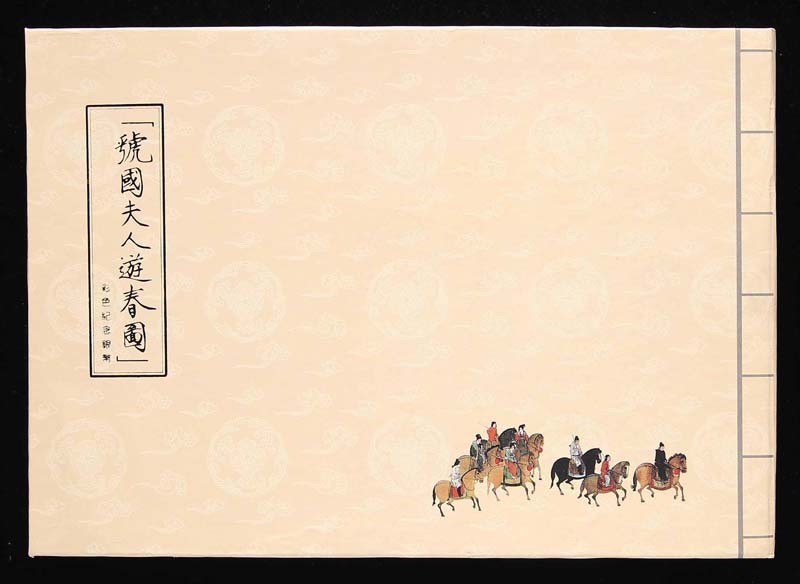 「虢國夫人遊春圖」
彩色紀念銀幣